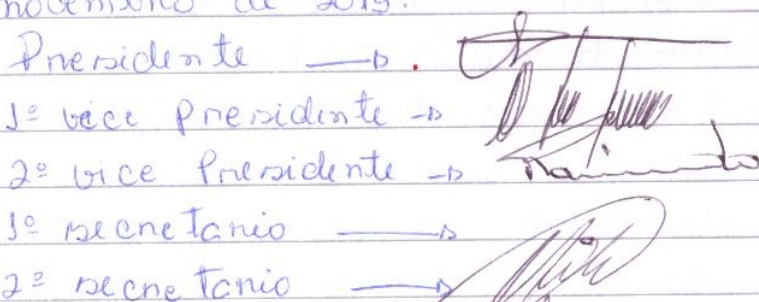 novembro de 2019.
Presidente
1º vice Presidente
2º vice Presidente Raimundo
1º secretario
2º secretario